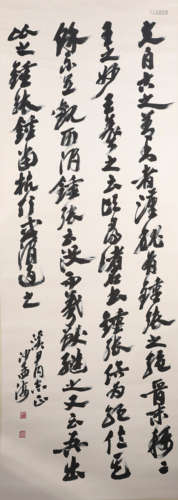 夫自古之善書者漢魏有鍾張之絕晉末稱二
王之妙王羲之云頃尋諸名書鍾張信為絕倫其
餘不足觀可謂鍾張云沒而羲獻繼之又云吾書
比之鍾張鍾當抗行或謂過之
同志正
沙孟海